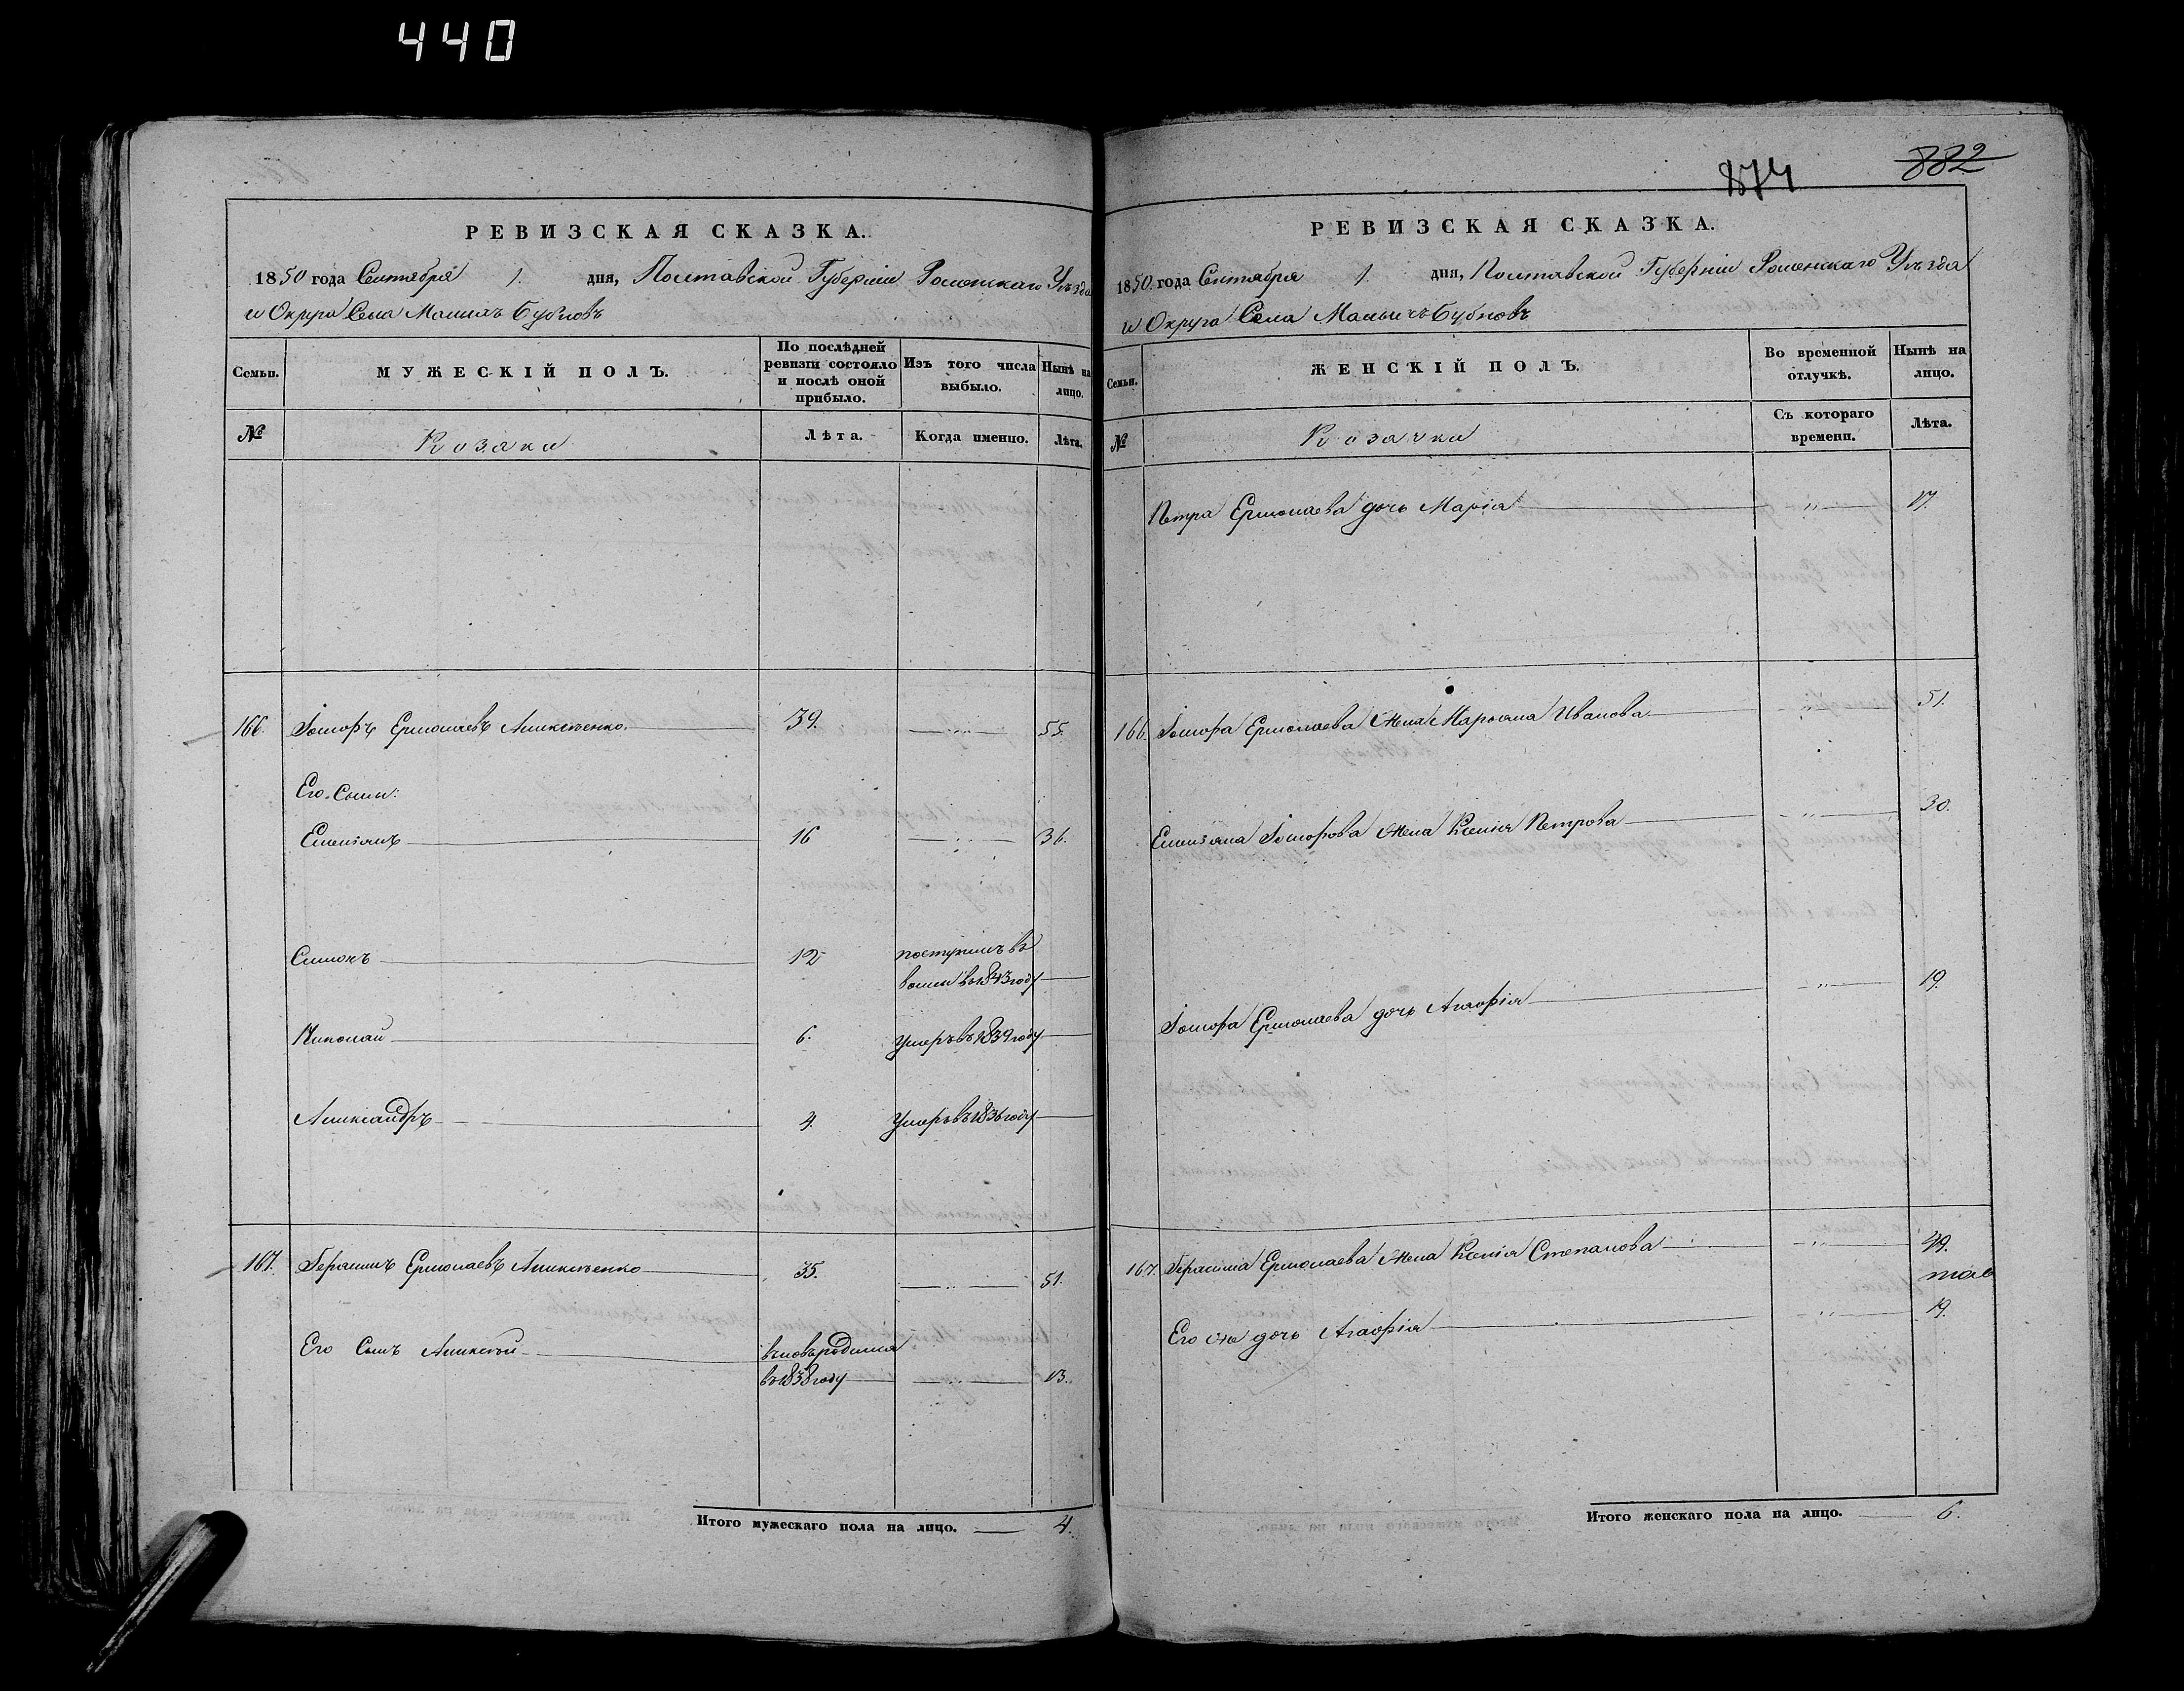 440
РЕВИЗСКАЯ СКАЗКА.
1850 года Сентября 1. дня, Полтавской Губерніи Роменскаго Уѣзда
и Округа Села Малыхъ Бубновъ
Семьи.
МУЖЕСКІЙ ПОЛЪ.
По послѣдней ревизіи состояло и послѣ оной прибыло.
Изъ того числа выбыло.
Нынѣ на лицо.
№
Козаки
Лѣта.
Когда именно.
Лѣта.
166. Ермолаевъ Алексѣенко 39. — „ — 55.
Его Сыны:
Емеліанъ 16 — „ — 36.
Симонъ 12 поступилъ въ
1843 году
Николай 6. Умеръ въ 1839 году
Александръ 4. Умеръ въ 1836 году
167. Герасимъ Ермолаевъ Алексѣенко 35. — „ — 51.
Его Сынъ Алексѣй вновь родился
въ 1838 году — „ — 13.
Итого мужескаго пола на лицо. — 4.
874
882
РЕВИЗСКАЯ СКАЗКА.
1850 года Сентября 1. дня, Полтавской Губерніи Роменскаго Уѣзда
и Округа Села Малыхъ Бубновъ
Семьи.
ЖЕНСКІЙ ПОЛЪ.
Во временной отлучкѣ.
Нынѣ на лицо.
№
Козачки
Съ котораго времени.
Лѣта.
Петра Ермолаева дочь Марія — „ — 17.
166. Ермолаева жена Марьяна Иванова — „ — 51.
Емеліана жена Ксенія Петрова — „ — 30.
Ермолаева дочь Агафія — „ — 19.
167. Герасима Ермолаева жена Ксенія Степанова — „ — 49.
Его же дочь Агафія — „ — 19.
Итого женскаго пола на лицо. — 6.